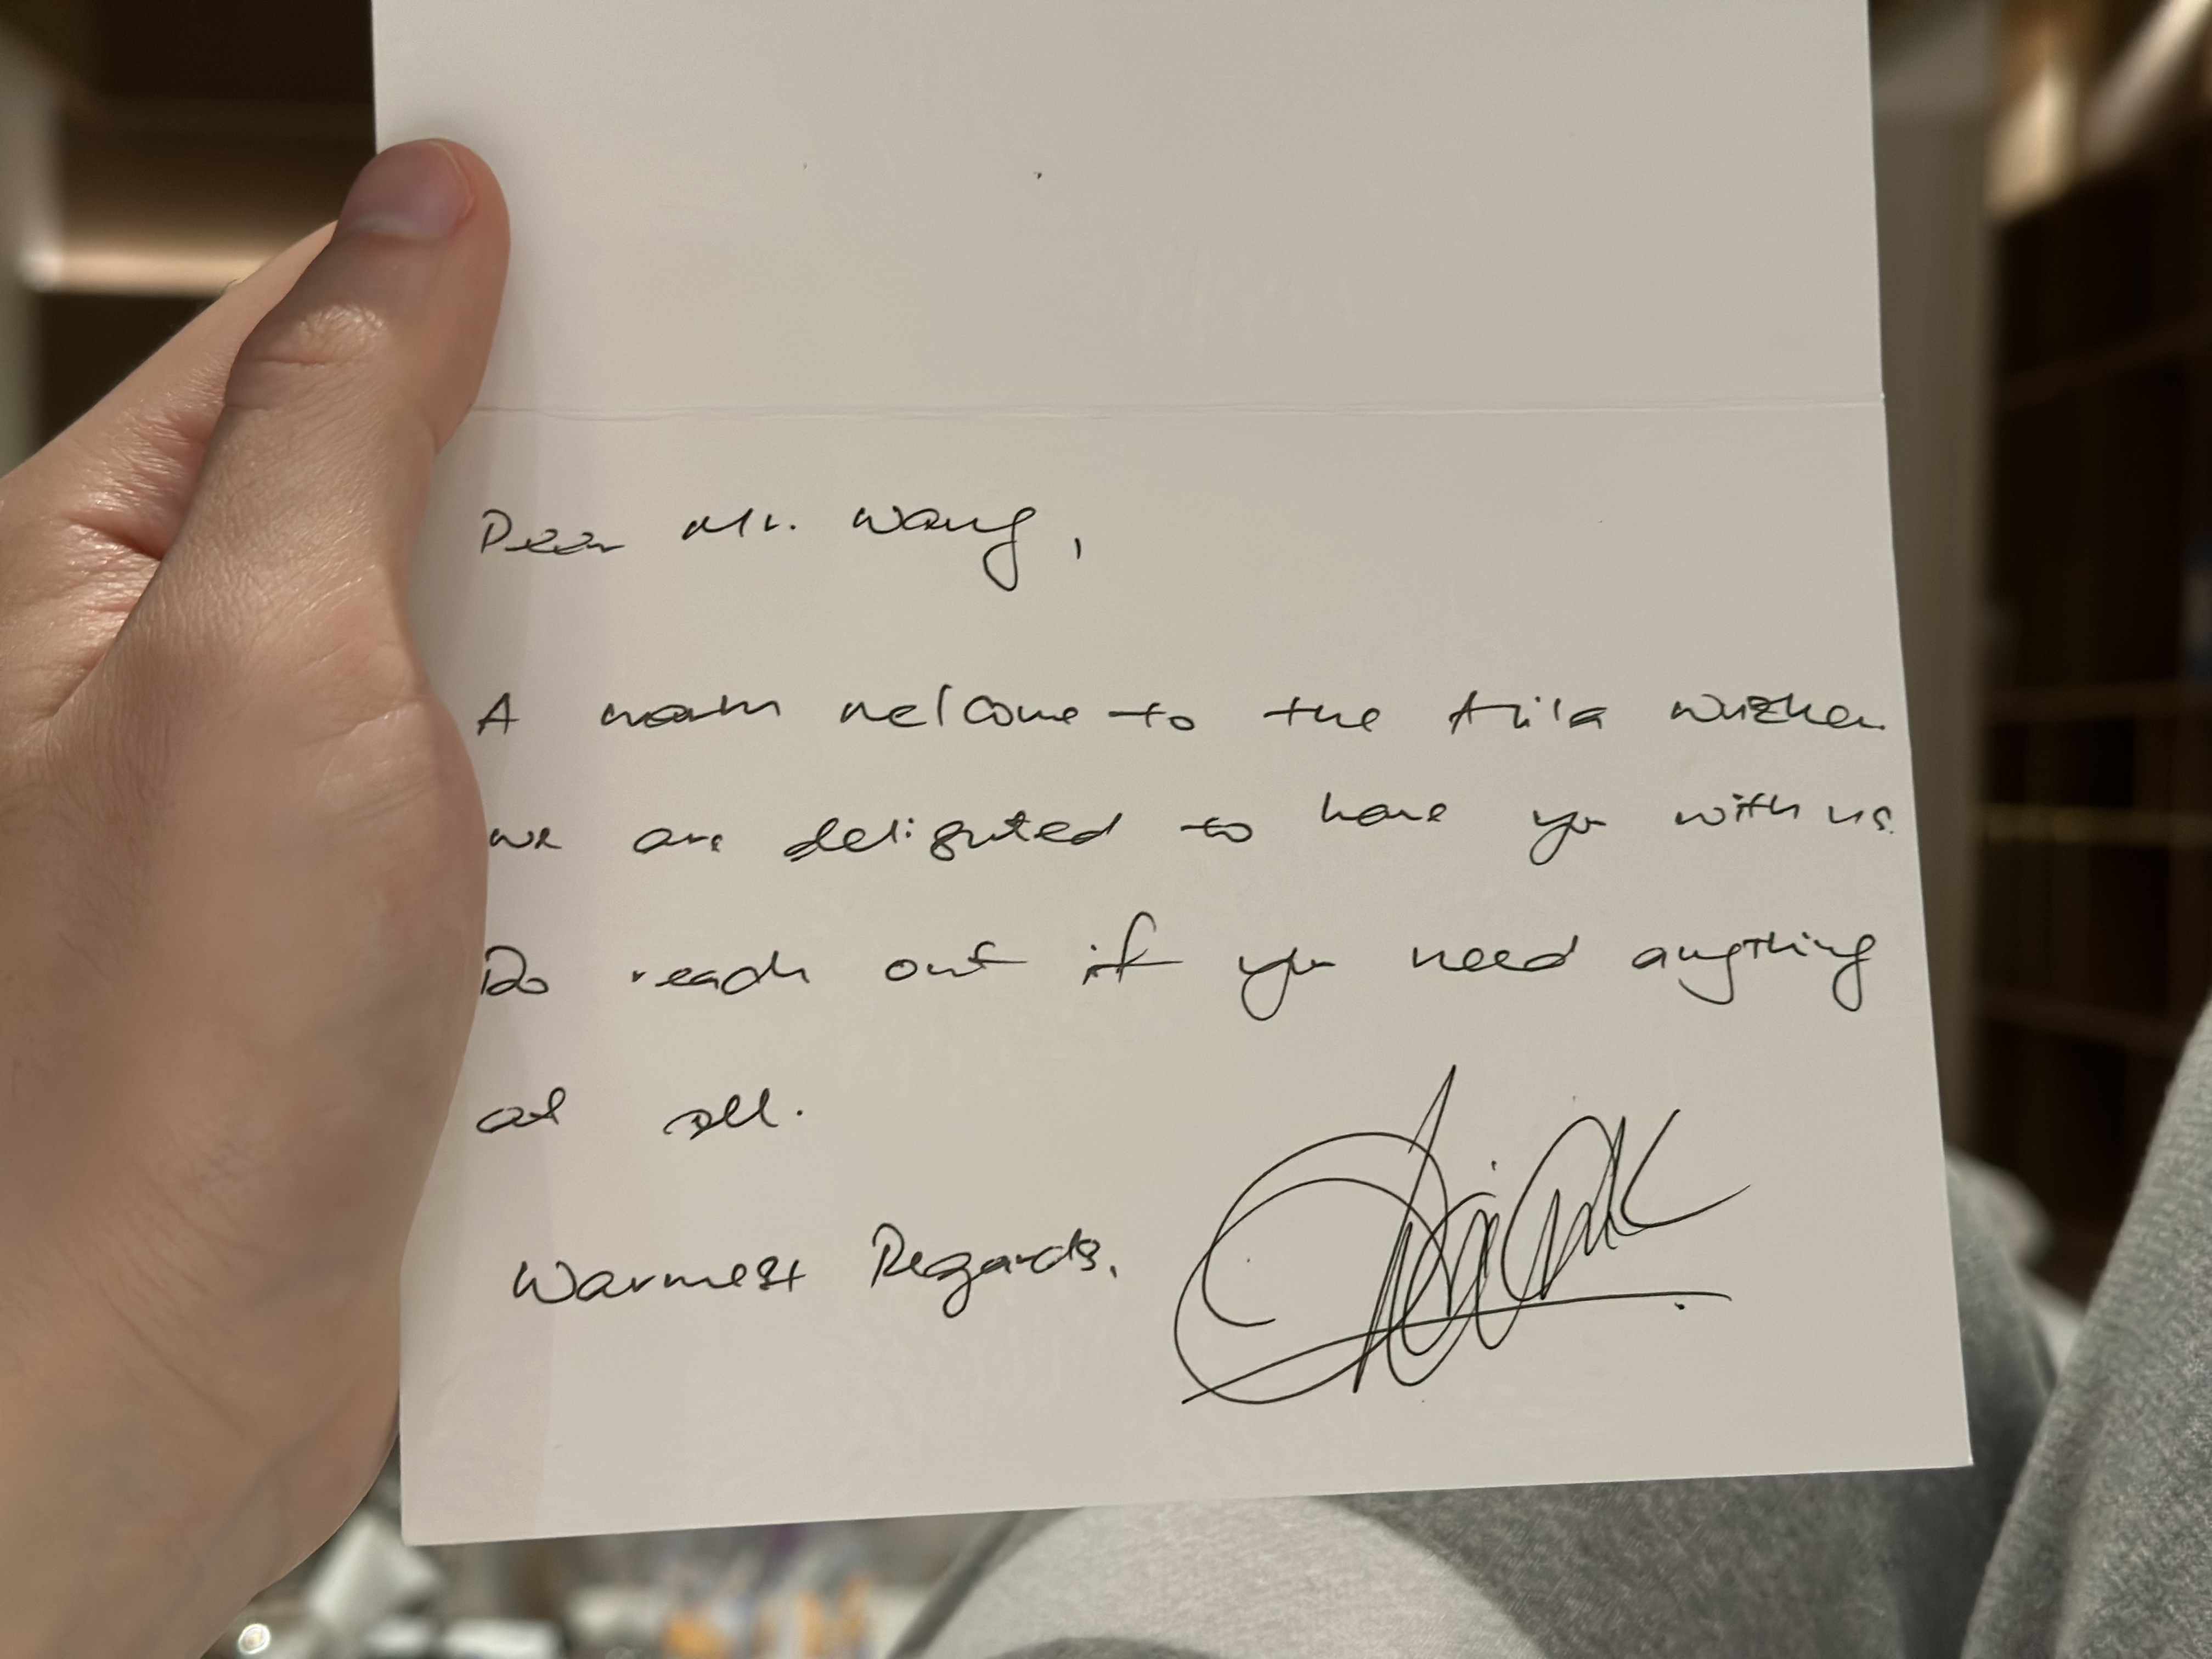 Dear Mr. Wang,
A warm welcome to the Alila Wuzhen
we are delighted to have you with us.
Do reach out if you need anything
at all.
Warmest Regards,